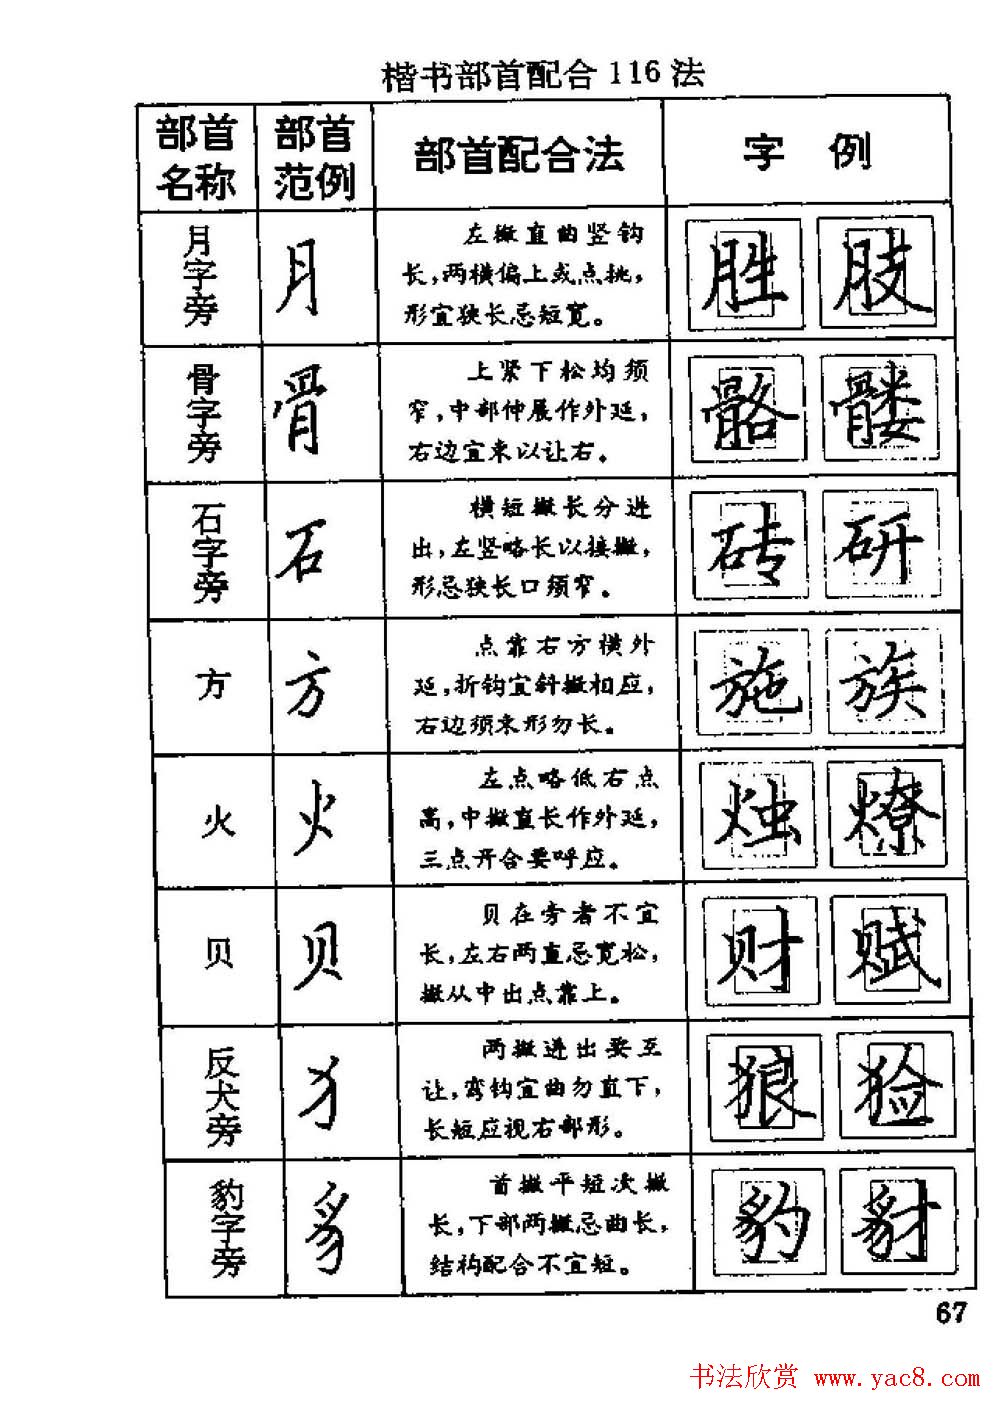 楷书部首配合116法
部首名称 部首范例 部首配合法 字例
月字旁 月 胜 肢
左撇直曲竖钩
长,两横偏上或点挑,
形宜狭长忌短宽。
骨字旁 骨 骼 髅
上紧下松均须
窄,中部伸展作外延,
右边宜束以让右。
石字旁 石 砖 研
横短撇长分进
出,左竖略长以接撇,
形忌狭长口须窄。
方 方 施 族
点靠右方横外
延,折钩宜斜撇相应,
右边须束形勿长。
火 火 烛 燎
左点略低右点
高,中撇直长作外延,
三点开合要呼应。
贝 贝 财 赋
贝在旁者不宜
长,左右两直忌宽松,
撇从中出点靠上。
反犬旁 犭 狼 猃
两撇进出要互
让,弯钩宜曲勿直下,
长短应视右部形。
豹字旁 豸 豹 豺
首撇平短次撇
长,下部两撇忌曲长,
结构配合不宜短。
67
书法欣赏 www.yac8.com